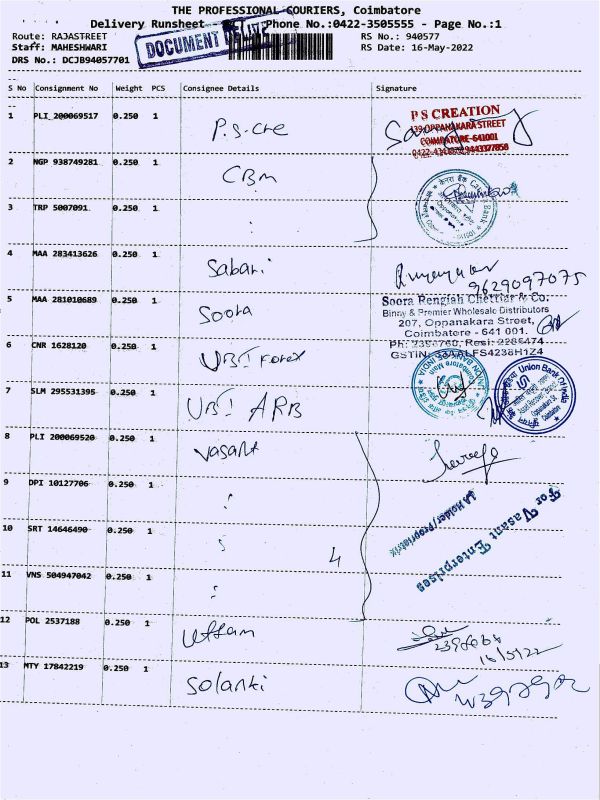 THE PROFESSIONAL COURIERS, Coimbatore
Delivery Runsheet - Phone No.:0422-3505555 - Page No.:1
Route: RAJASTREET RS No.: 940577
Staff: MAHESHWARI RS Date: 16-May-2022
DRS No.: DCJB94057701
DOCUMENT
S No Consignment No Weight PCS Consignee Details Signature
1 PLI 200069517 0.250 1 P.S-Cre
P S CREATION
139 OPPANAKARA STREET
COIMBATORE-641001
2 NGP 938749281 0.250 1 CBM
3 TRP 5007091 0.250 1 :
4 MAA 283413626 0.250 1 Sabari
9629097075
5 MAA 281010689 0.250 1 Soora
Soora Rengiah Chettiar & Co.
Binny & Premier Wholesale Distributors
207, Oppanakara Street,
Coimbatore - 641 001.
Ph: 2396760, Resi: 2286474
GSTIN: 33AALFS4238H1Z4
6 CNR 1628120 0.250 1 UBI Forex
7 SLM 295531395 0.250 1 UBI ARB
Union Bank Of India
8 PLI 200069520 0.250 1 Vasant
9 DPI 10127706 0.250 1 :
For Vasant Enterprises
10 SRT 14646490 0.250 1 :
4
11 VNS 504947042 0.250 1 :
12 POL 2537188 0.250 1 Uttam
16/5/22
13 MTY 17842219 0.250 1 Solanki